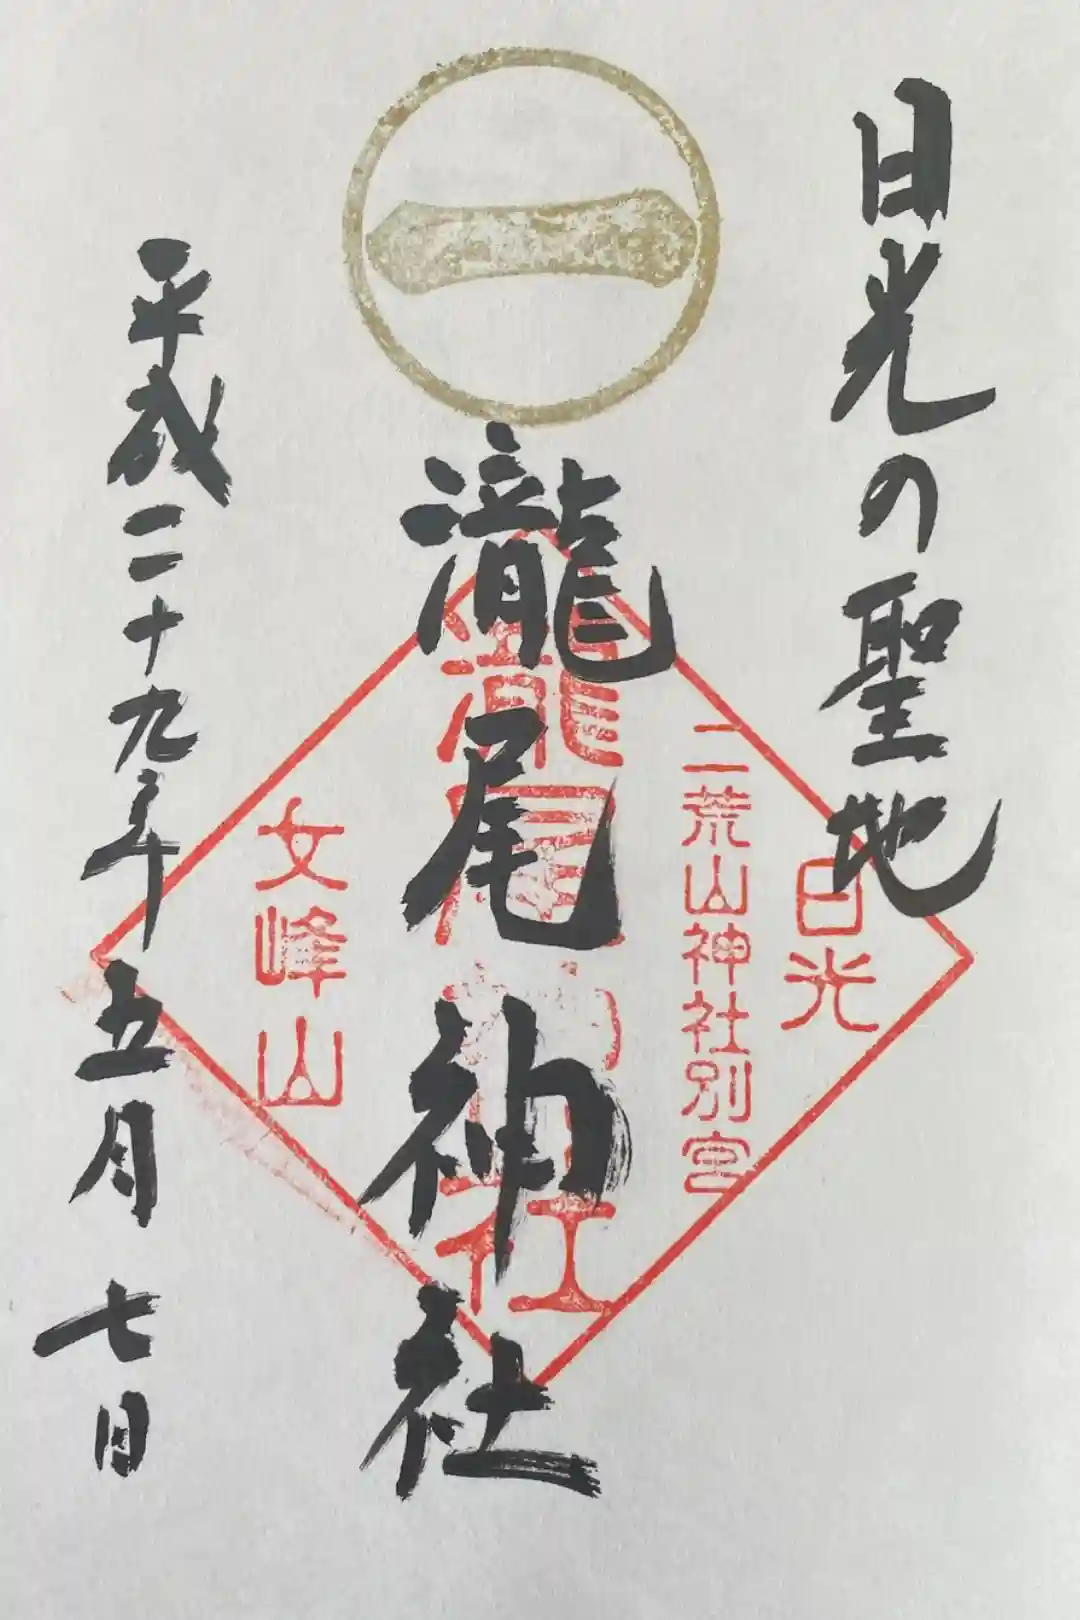 日光の聖地
日光
二荒山神社別宮
一
瀧尾神社
瀧尾神社
女峰山
平成二十九年五月七日